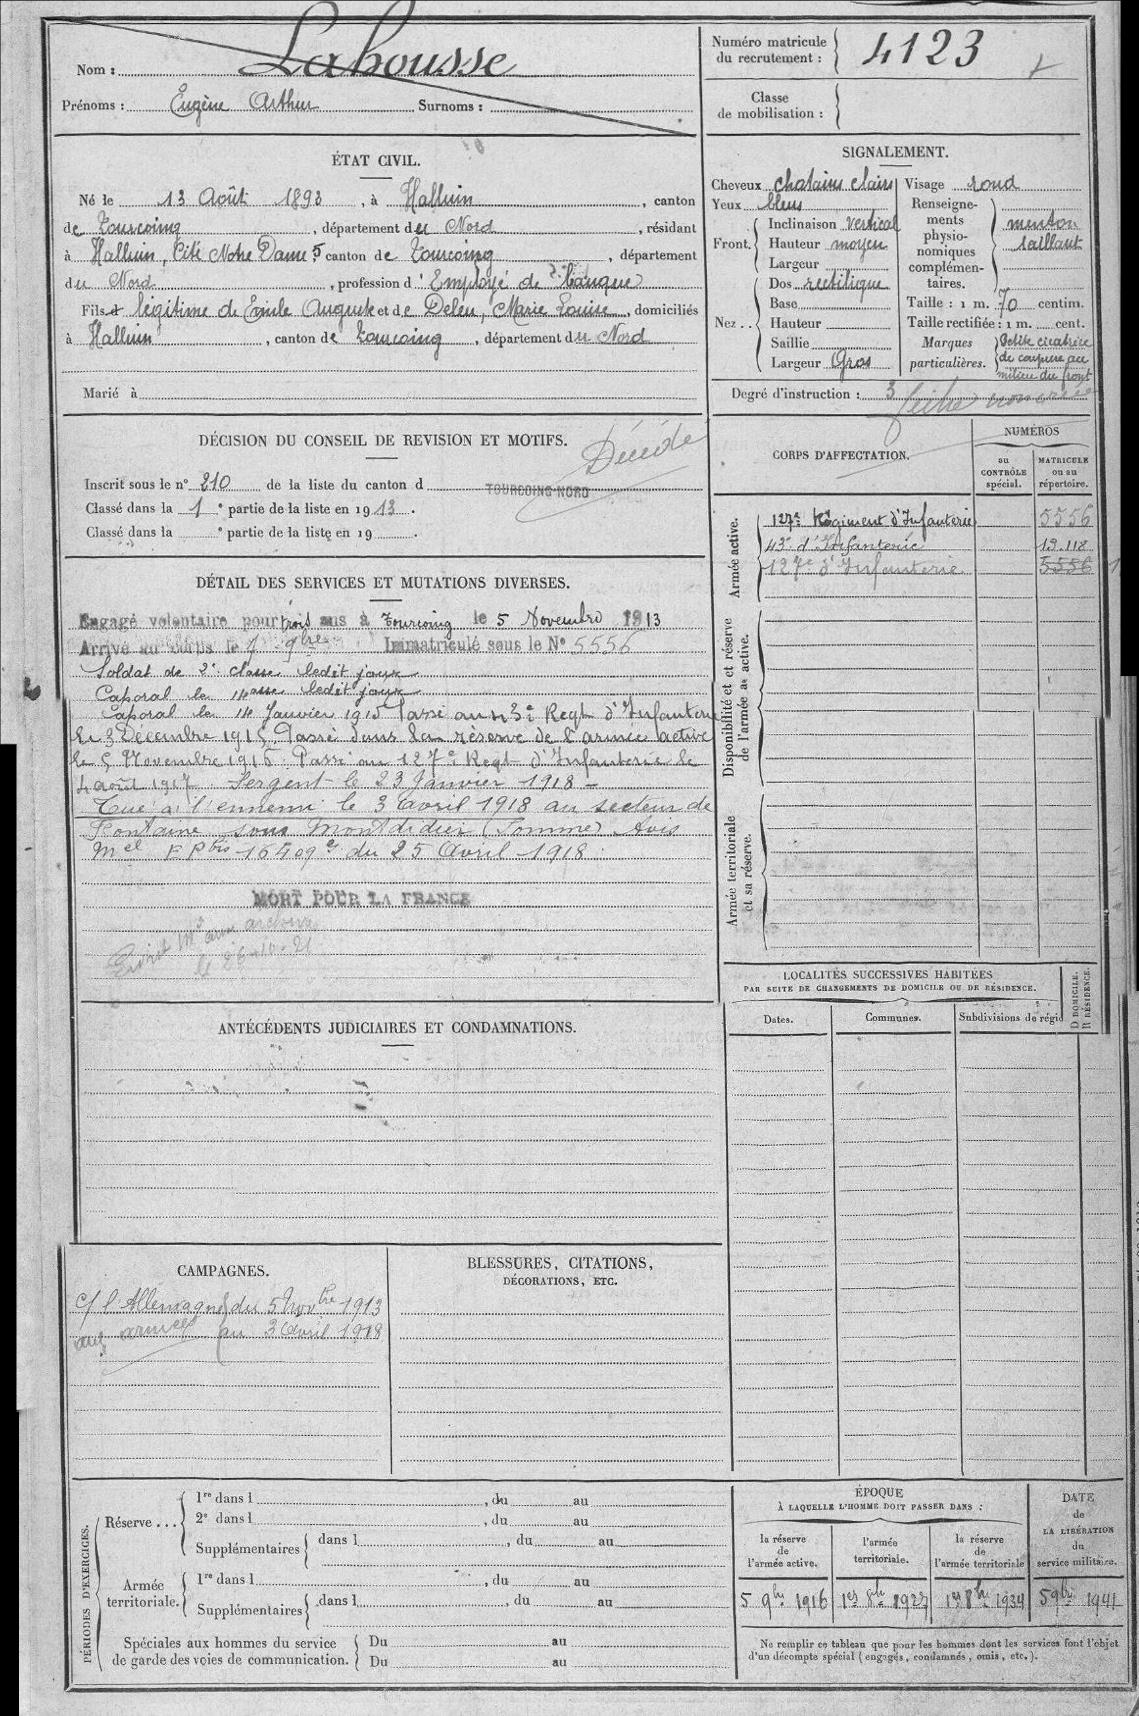 Nom : Lahousse
Prénoms : Eugène Arthur Surnoms :
Numéro matricule du recrutement : 4123
Classe de mobilisation :
ÉTAT CIVIL.
Né le 13 Août 1893, à Halluin, canton
de Tourcoing, département du Nord, résidant
à Halluin, Cité Notre Dame 5 canton de Tourcoing, département
du Nord, profession d'Employé de banque
Fils et légitime de Emile Auguste et de Deleu, Marie Louise, domiciliés
à Halluin, canton de Tourcoing, département du Nord
Marié à
SIGNALEMENT.
Cheveux chatains clairs
Yeux bleus
Front. Inclinaison vertical
Hauteur moyen
Largeur
Nez .. Dos rectiligne
Base
Hauteur
Saillie
Largeur Gros
Visage rond
Renseignements physionomiques complémentaires. menton saillant
Taille : 1 m. 70 centim.
Taille rectifiée : 1 m. cent.
Marques particulières. Petite cicatrice de coupure au milieu du front
Degré d'instruction : 3
DÉCISION DU CONSEIL DE REVISION ET MOTIFS.
Décédé
Inscrit sous le n° 210 de la liste du canton d TOURCOING-NORD
Classé dans la 1e partie de la liste en 1913.
Classé dans la e partie de la liste en 19 .
CORPS D'AFFECTATION.
NUMÉROS
au CONTRÔLE spécial.
MATRICULE ou au répertoire.
Armée active.
127e Régiment d'Infanterie 5556
43e d'Infanterie 19.118
127e d'Infanterie 5556
Disponibilité et réserve de l'armée active.
Armée territoriale et sa réserve.
DÉTAIL DES SERVICES ET MUTATIONS DIVERSES.
Engagé volontaire pour trois ans à Tourcoing le 5 Novembre 1913
Arrivé au corps le 9bre Immatriculé sous le N° 5556
Soldat de 2e classe ledit jour
Caporal le ledit jour
Caporal le 14 Janvier 1915 Passé au 43e Regt d'Infanterie
le 3 Décembre 1915, Passé dans la réserve de l'armée active
le 5 Novembre 1916. Passé au 127e Regt d'Infanterie le
4 août 1917. Sergent le 23 Janvier 1918 -
Tué à l'ennemi le 3 avril 1918 au secteur de
Fontaine sous Montdidier (Somme) Avis
Mel FP bis 16409 du 25 Avril 1918.
MORT POUR LA FRANCE
le 26-10-21
LOCALITÉS SUCCESSIVES HABITÉES
PAR SUITE DE CHANGEMENTS DE DOMICILE OU DE RÉSIDENCE.
Dates. Communes. Subdivisions de régi
D DOMICILE. R RÉSIDENCE.
ANTÉCÉDENTS JUDICIAIRES ET CONDAMNATIONS.
CAMPAGNES.
c/ l'Allemagne du 5 Novbre 1913
aux armées au 3 Avril 1918
BLESSURES, CITATIONS,
DÉCORATIONS, ETC.
PÉRIODES D'EXERCICES.
Réserve ... 1re dans l , du au
2e dans l , du au
Supplémentaires dans l , du au
Armée territoriale. 1re dans l , du au
Supplémentaires dans l , du au
Spéciales aux hommes du service Du au
de garde des voies de communication. Du au
ÉPOQUE
À LAQUELLE L'HOMME DOIT PASSER DANS :
la réserve de l'armée active.
l'armée territoriale.
la réserve de l'armée territoriale
DATE de LA LIBÉRATION du service militaire.
5 9bre 1916 1er 8bre 1927 1er 8bre 1934 5 9bre 1941
Ne remplir ce tableau que pour les hommes dont les services font l'objet
d'un décompte spécial (engagés, condamnés, omis, etc.).